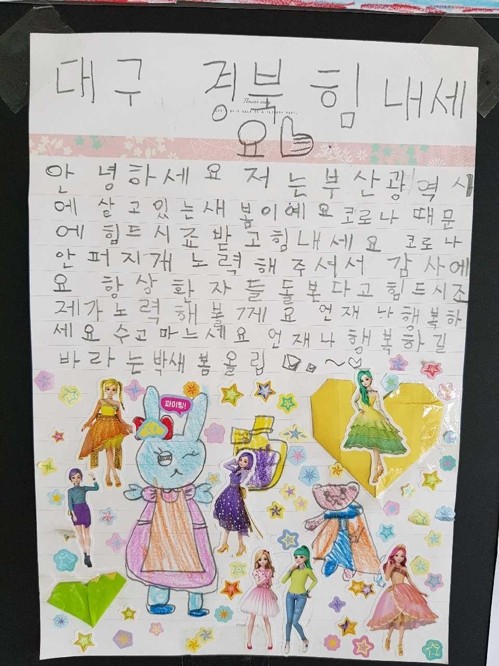 대구 경북 힘내세
요
안녕하세요 저는부산광역시
에 살고있는새봄이예요 코로나 때문
에 힘드시죠 받고힘내세요 코로나
안퍼지개 노력해주셔서 감사에
요 항상환자들돌본다고힘드시죠
제가노력해볼게요 언재나행복하
세요수고마느세요 언재나행복하길
바라는박새봄올림
파이팅!